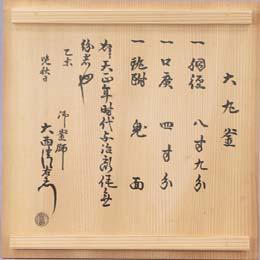 大丸釜
一胴径 八寸九分
一口広 四寸分
一鐶附 鬼面
右天正年時代与治郎作無
紛者也
乙未
晩秋日
御釜師
大西清右衛門